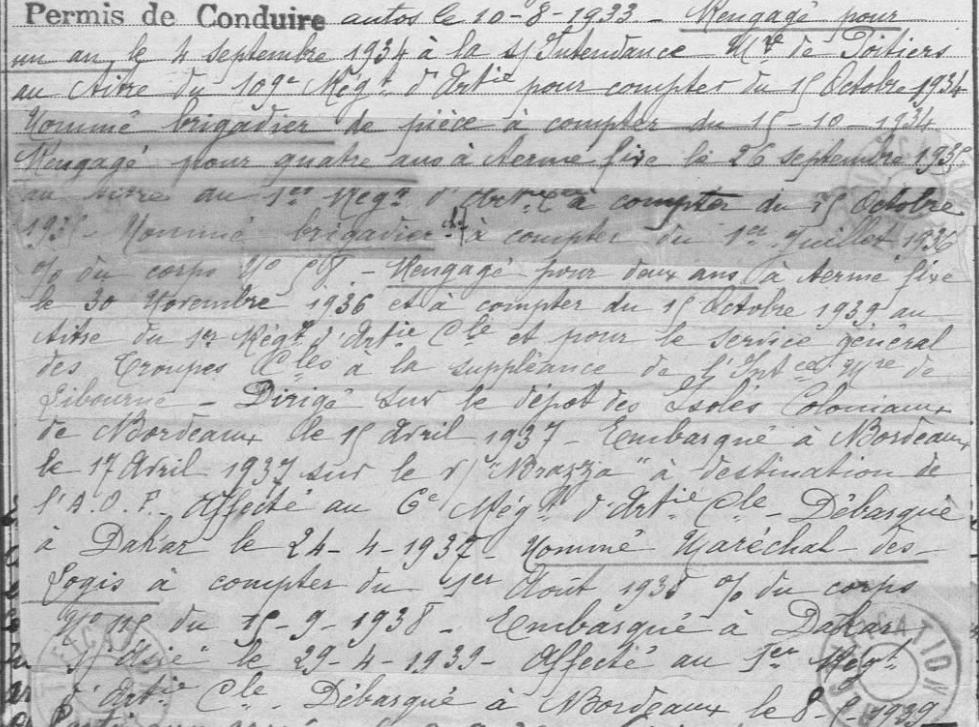 Permis de Conduire autos le 10-8-1933 - Rengagé pour
un an, le 4 septembre 1934 à la s/Intendance Mre de Poitiers
au titre du 109e Régt d'Artie pour compter du 15 Octobre 1934
Nommé brigadier de pièce à compter du 15-10-1934
Rengagé pour quatre ans à terme fixe le 26 septembre 1935
au titre du 1er Régt d'Artie Cle à compter du 15 Octobre
1935 - Nommé brigadier à compter du 1er Juillet 1936
o/o du corps No 58 - Rengagé pour deux ans à terme fixe
le 30 Novembre 1936 et à compter du 15 Octobre 1939 au
titre du 1er Régt d'Artie Cle et pour le service général
des Troupes Cles à la suppléance de l'Intce Mre de
Libourne - Dirigé sur le dépôt des Isolés Coloniaux
de Bordeaux le 15 Avril 1937 - Embarqué à Bordeaux
le 17 Avril 1937 sur le v/ "Brazza" à destination de
l'A.O.F. Affecté au 6e Régt d'Artie Cle - Débarqué
à Dakar le 24-4-1937 - Nommé Maréchal-des-
Logis à compter du 1er Août 1938 o/o du corps
No 115 du 15-9-1938 - Embarqué à Dakar
s/ "Asie" le 29-4-1939 - Affecté au 1er Régt
d'Artie Cle. Débarqué à Bordeaux le 8 1939